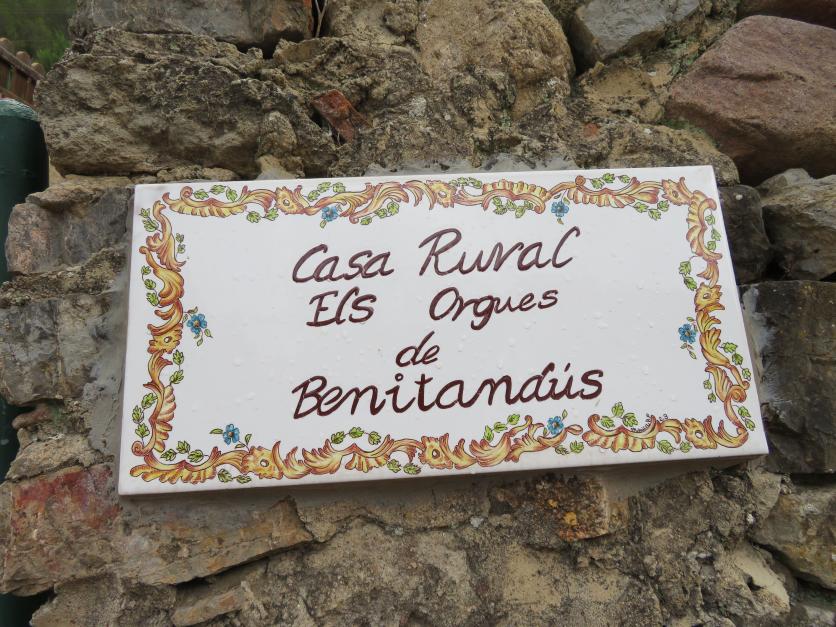 Casa Rural
Els Orgues
de
Benitandús